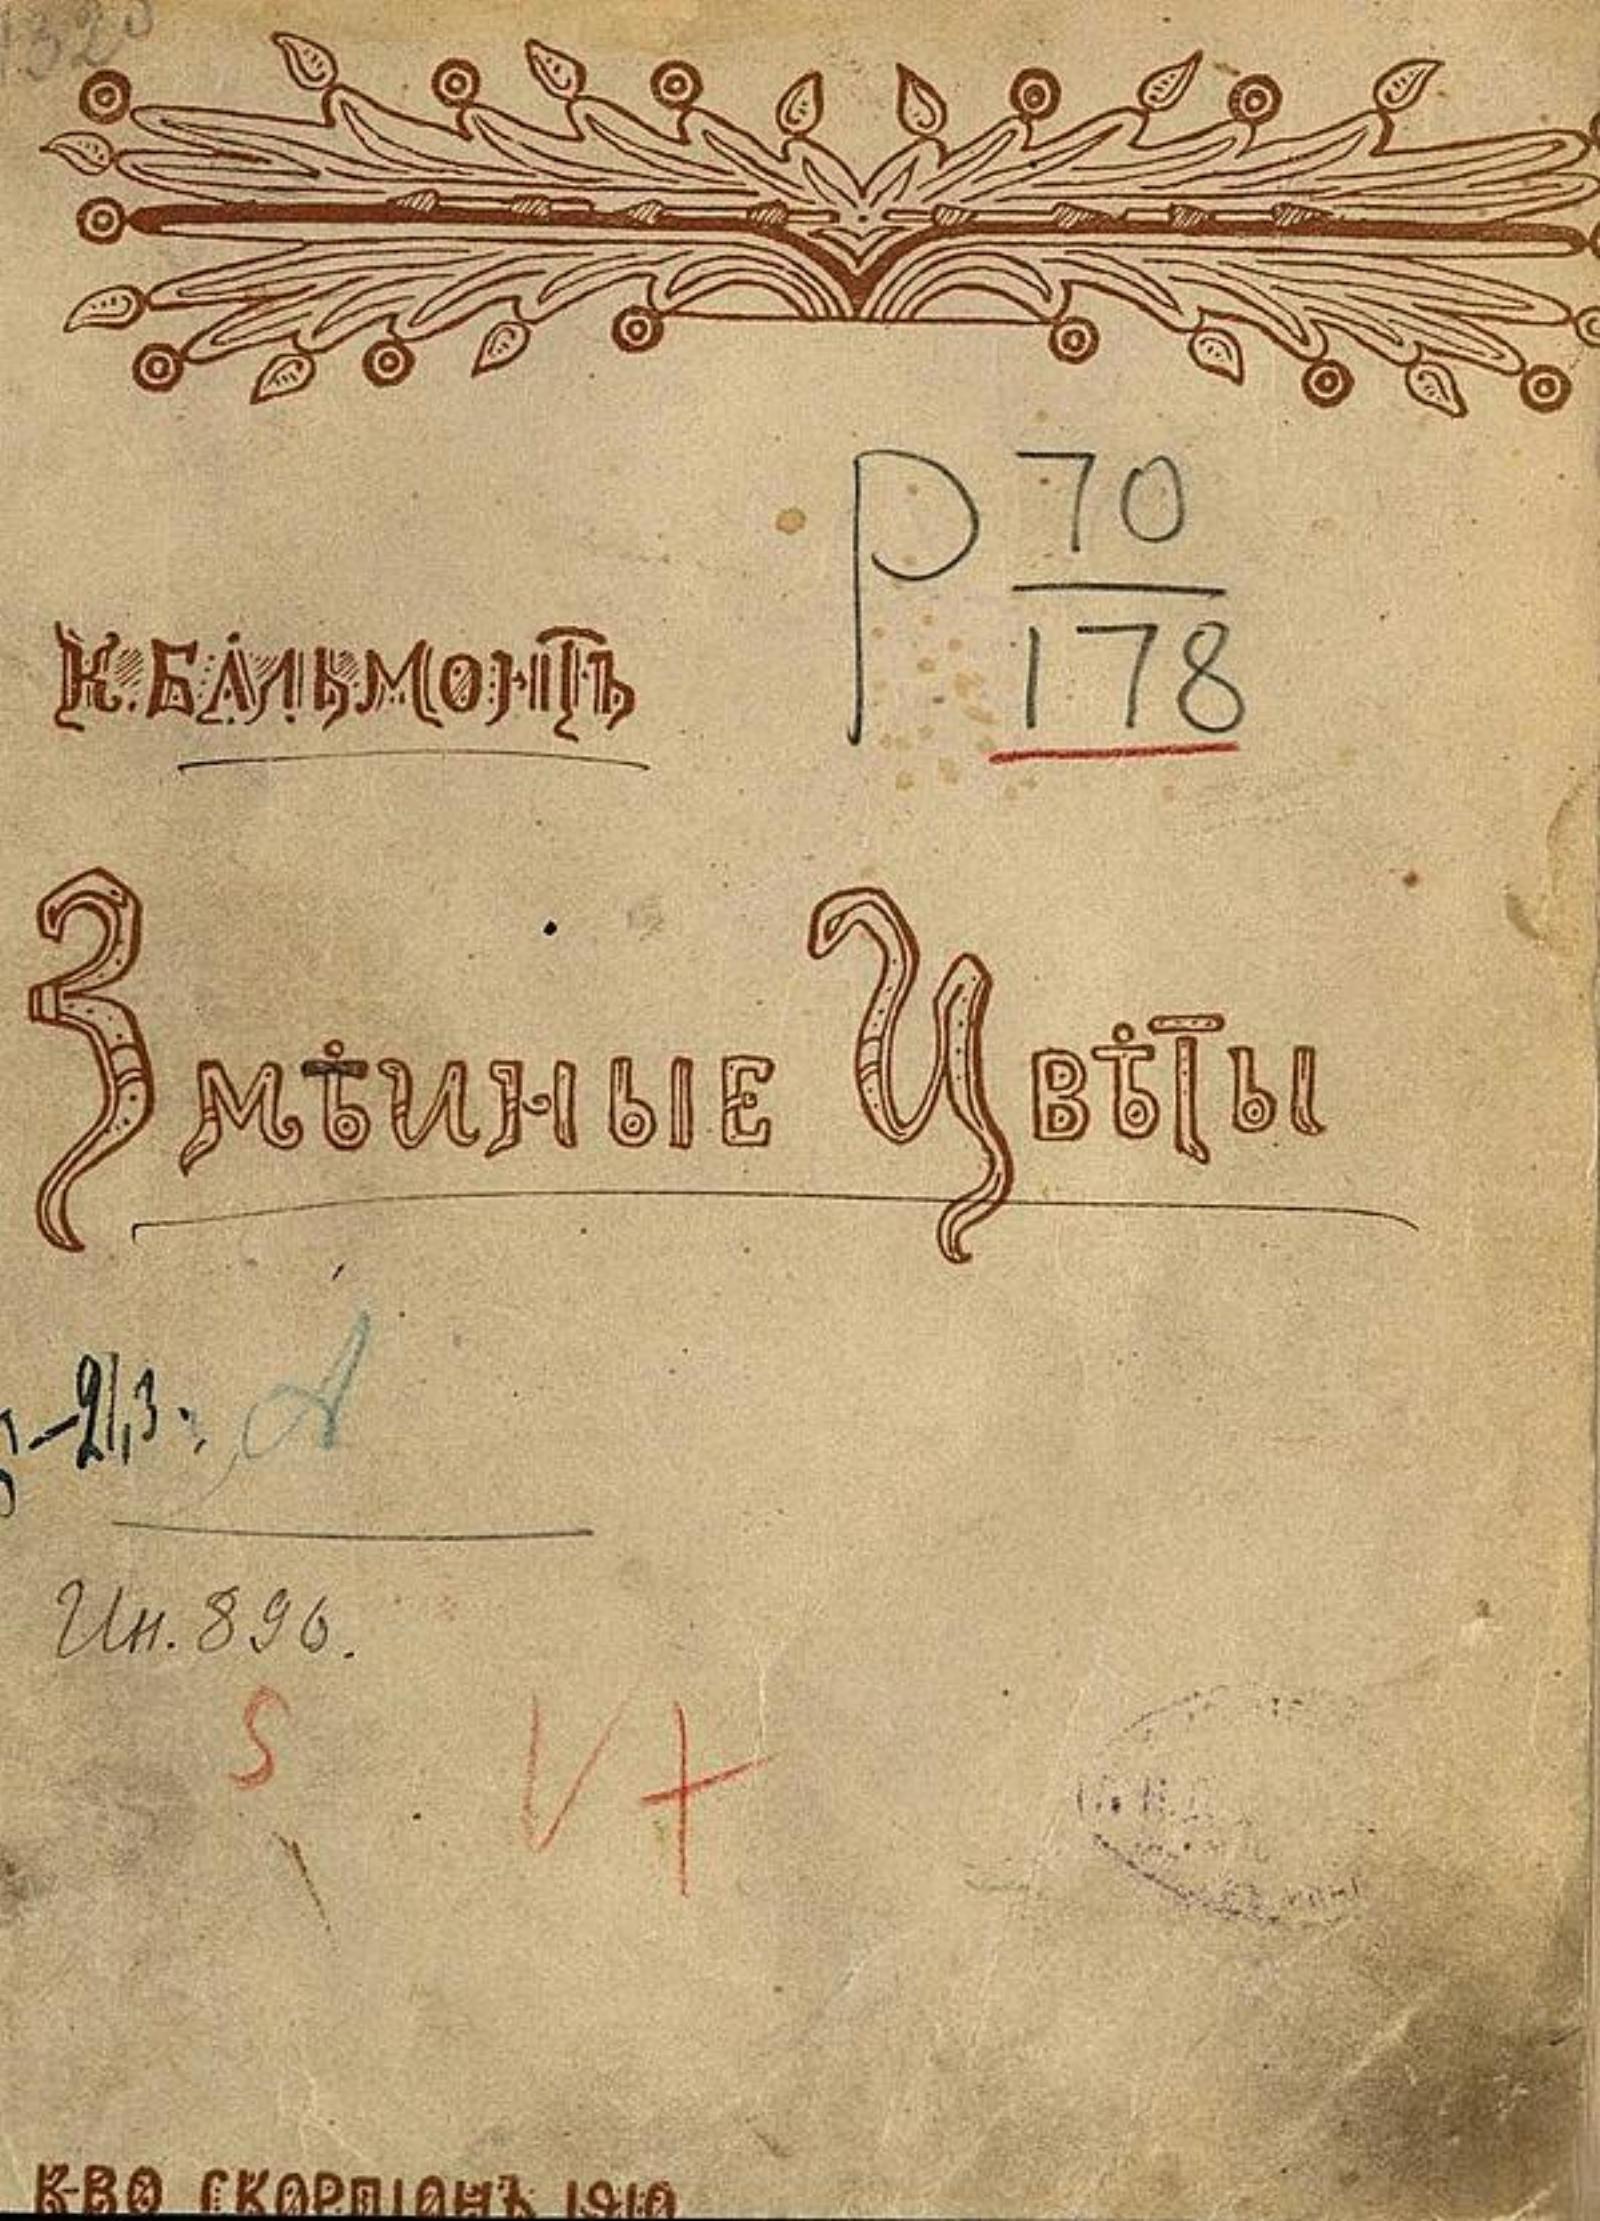 К. БАЛЬМОНТЪ
Р 70
178
ЗМѢИНЫЕ ЦВѢТЫ
Ин. 896.
S V+
К-ВО СКОРПІОНЪ 1910